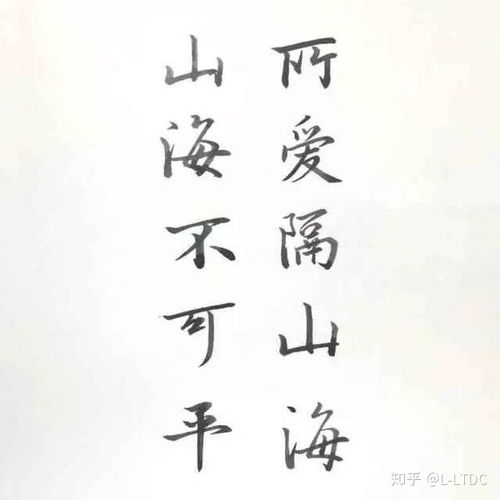 所爱隔山海
山海不可平
知乎 @L-LTDC